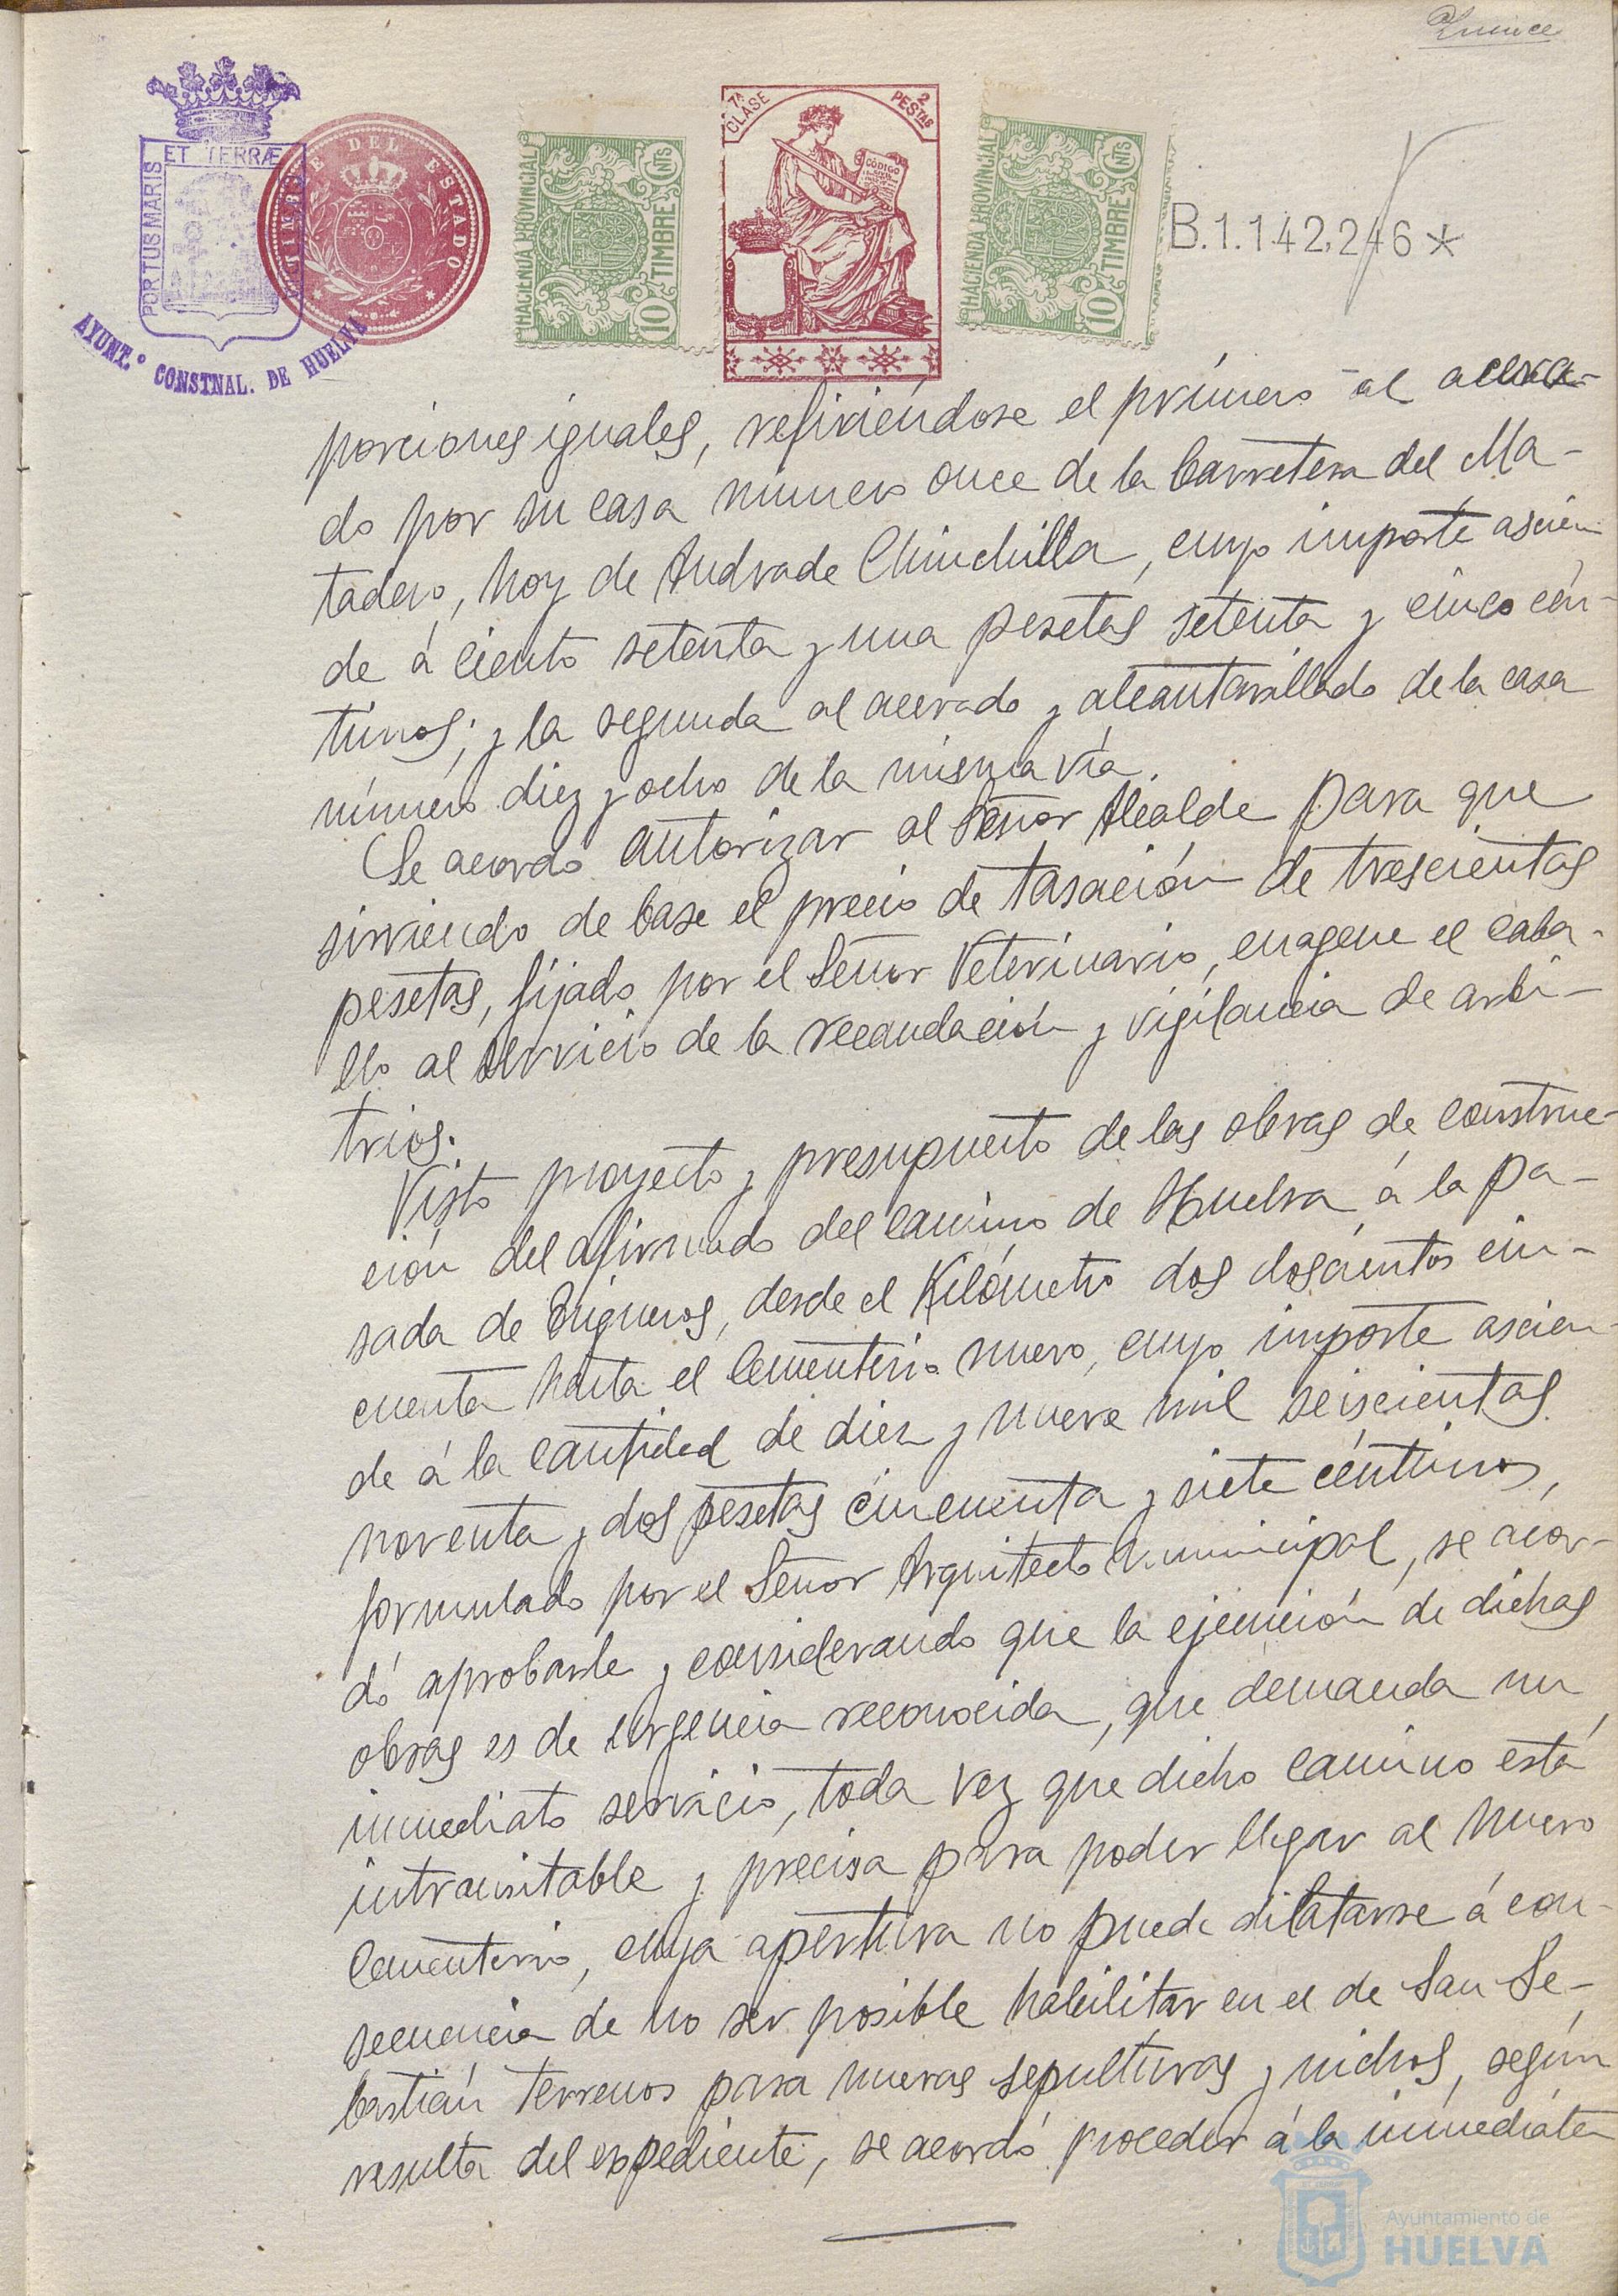 Quince
ET TERRÆ
PORTUS MARIS
AYUNT.º CONSTNAL. DE HUELVA
TIMBRE DEL ESTADO
HACIENDA PROVINCIAL
10 TIMBRE CNTS
7ª CLASE
2 PESTAS
CÓDIGO
HACIENDA PROVINCIAL
10 TIMBRE CNTS
B.1.142.246*
porciones iguales, refiriéndose el primero al acera-
do por su casa número once de la Carretera del Ma-
tadero, hoy de Andrade Chinchilla, cuyo importe ascien
de á ciento setenta y una pesetas setenta y cinco cén-
timos; y la segunda al acerado y alcantarillado de la casa
número diez y ocho de la misma vía.
Se acordó autorizar al Señor Alcalde para que
sirviendo de base el precio de tasación de trescientas
pesetas, fijado por el Señor Veterinario, enagene el caba-
llo al servicio de la recaudación y vigilancia de arbi-
trios.
Visto proyecto y presupuesto de las obras de construc-
ción del afirmado del camino de Huelva á la pa-
sada de Trigueros, desde el Kilómetro dos doscientos cin-
cuenta hasta el Cementerio nuevo, cuyo importe ascien-
de á la cantidad de diez y nueve mil seiscientas
noventa y dos pesetas cincuenta y siete céntimos,
formulado por el Señor Arquitecto municipal, se acor-
dó aprobarle y considerando que la ejecución de dichas
obras es de urgencia reconocida, que demanda un
inmediato servicio, toda vez que dicho camino está
intransitable y precisa para poder llegar al nuevo
Cementerio, cuya apertura no puede dilatarse á con-
secuencia de no ser posible habilitar en el de San Se-
bastián terrenos para nuevas sepulturas y nichos, según
resulta del expediente, se acordó proceder á la inmediata
Ayuntamiento de
HUELVA